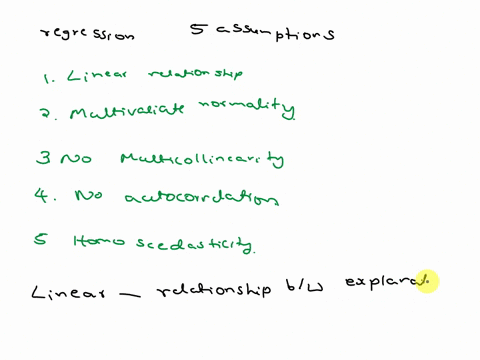 regression 5 assumptions
1. Linear relationship
2. Multivaliate normality
3 No Multicollinearity
4. No autocorrelation
5 Homo scedasticity
Linear — relationship b/w explanat